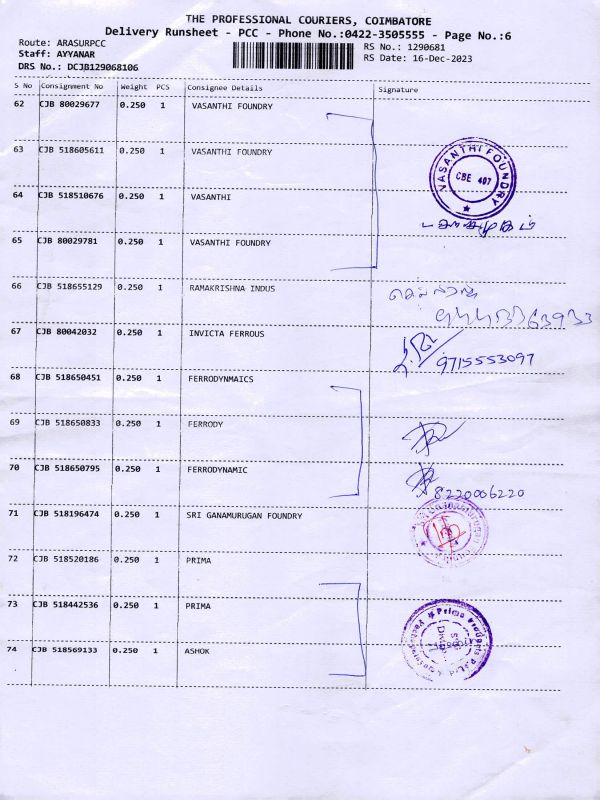 THE PROFESSIONAL COURIERS, COIMBATORE
Delivery Runsheet - PCC - Phone No.:0422-3505555 - Page No.:6
Route: ARASURPCC
Staff: AYYANAR
DRS No.: DCJB129068106
RS No.: 1290681
RS Date: 16-Dec-2023
S No Consignment No Weight PCS Consignee Details Signature
62 CJB 80029677 0.250 1 VASANTHI FOUNDRY
63 CJB 518605611 0.250 1 VASANTHI FOUNDRY
VASANTHI FOUNDRY
CBE 407
64 CJB 518510676 0.250 1 VASANTHI
65 CJB 80029781 0.250 1 VASANTHI FOUNDRY
66 CJB 518655129 0.250 1 RAMAKRISHNA INDUS
67 CJB 80042032 0.250 1 INVICTA FERROUS
9715553097
68 CJB 518650451 0.250 1 FERRODYNMAICS
69 CJB 518650833 0.250 1 FERRODY
70 CJB 518650795 0.250 1 FERRODYNAMIC
8220006220
71 CJB 518196474 0.250 1 SRI GANAMURUGAN FOUNDRY
72 CJB 518520186 0.250 1 PRIMA
73 CJB 518442536 0.250 1 PRIMA
74 CJB 518569133 0.250 1 ASHOK